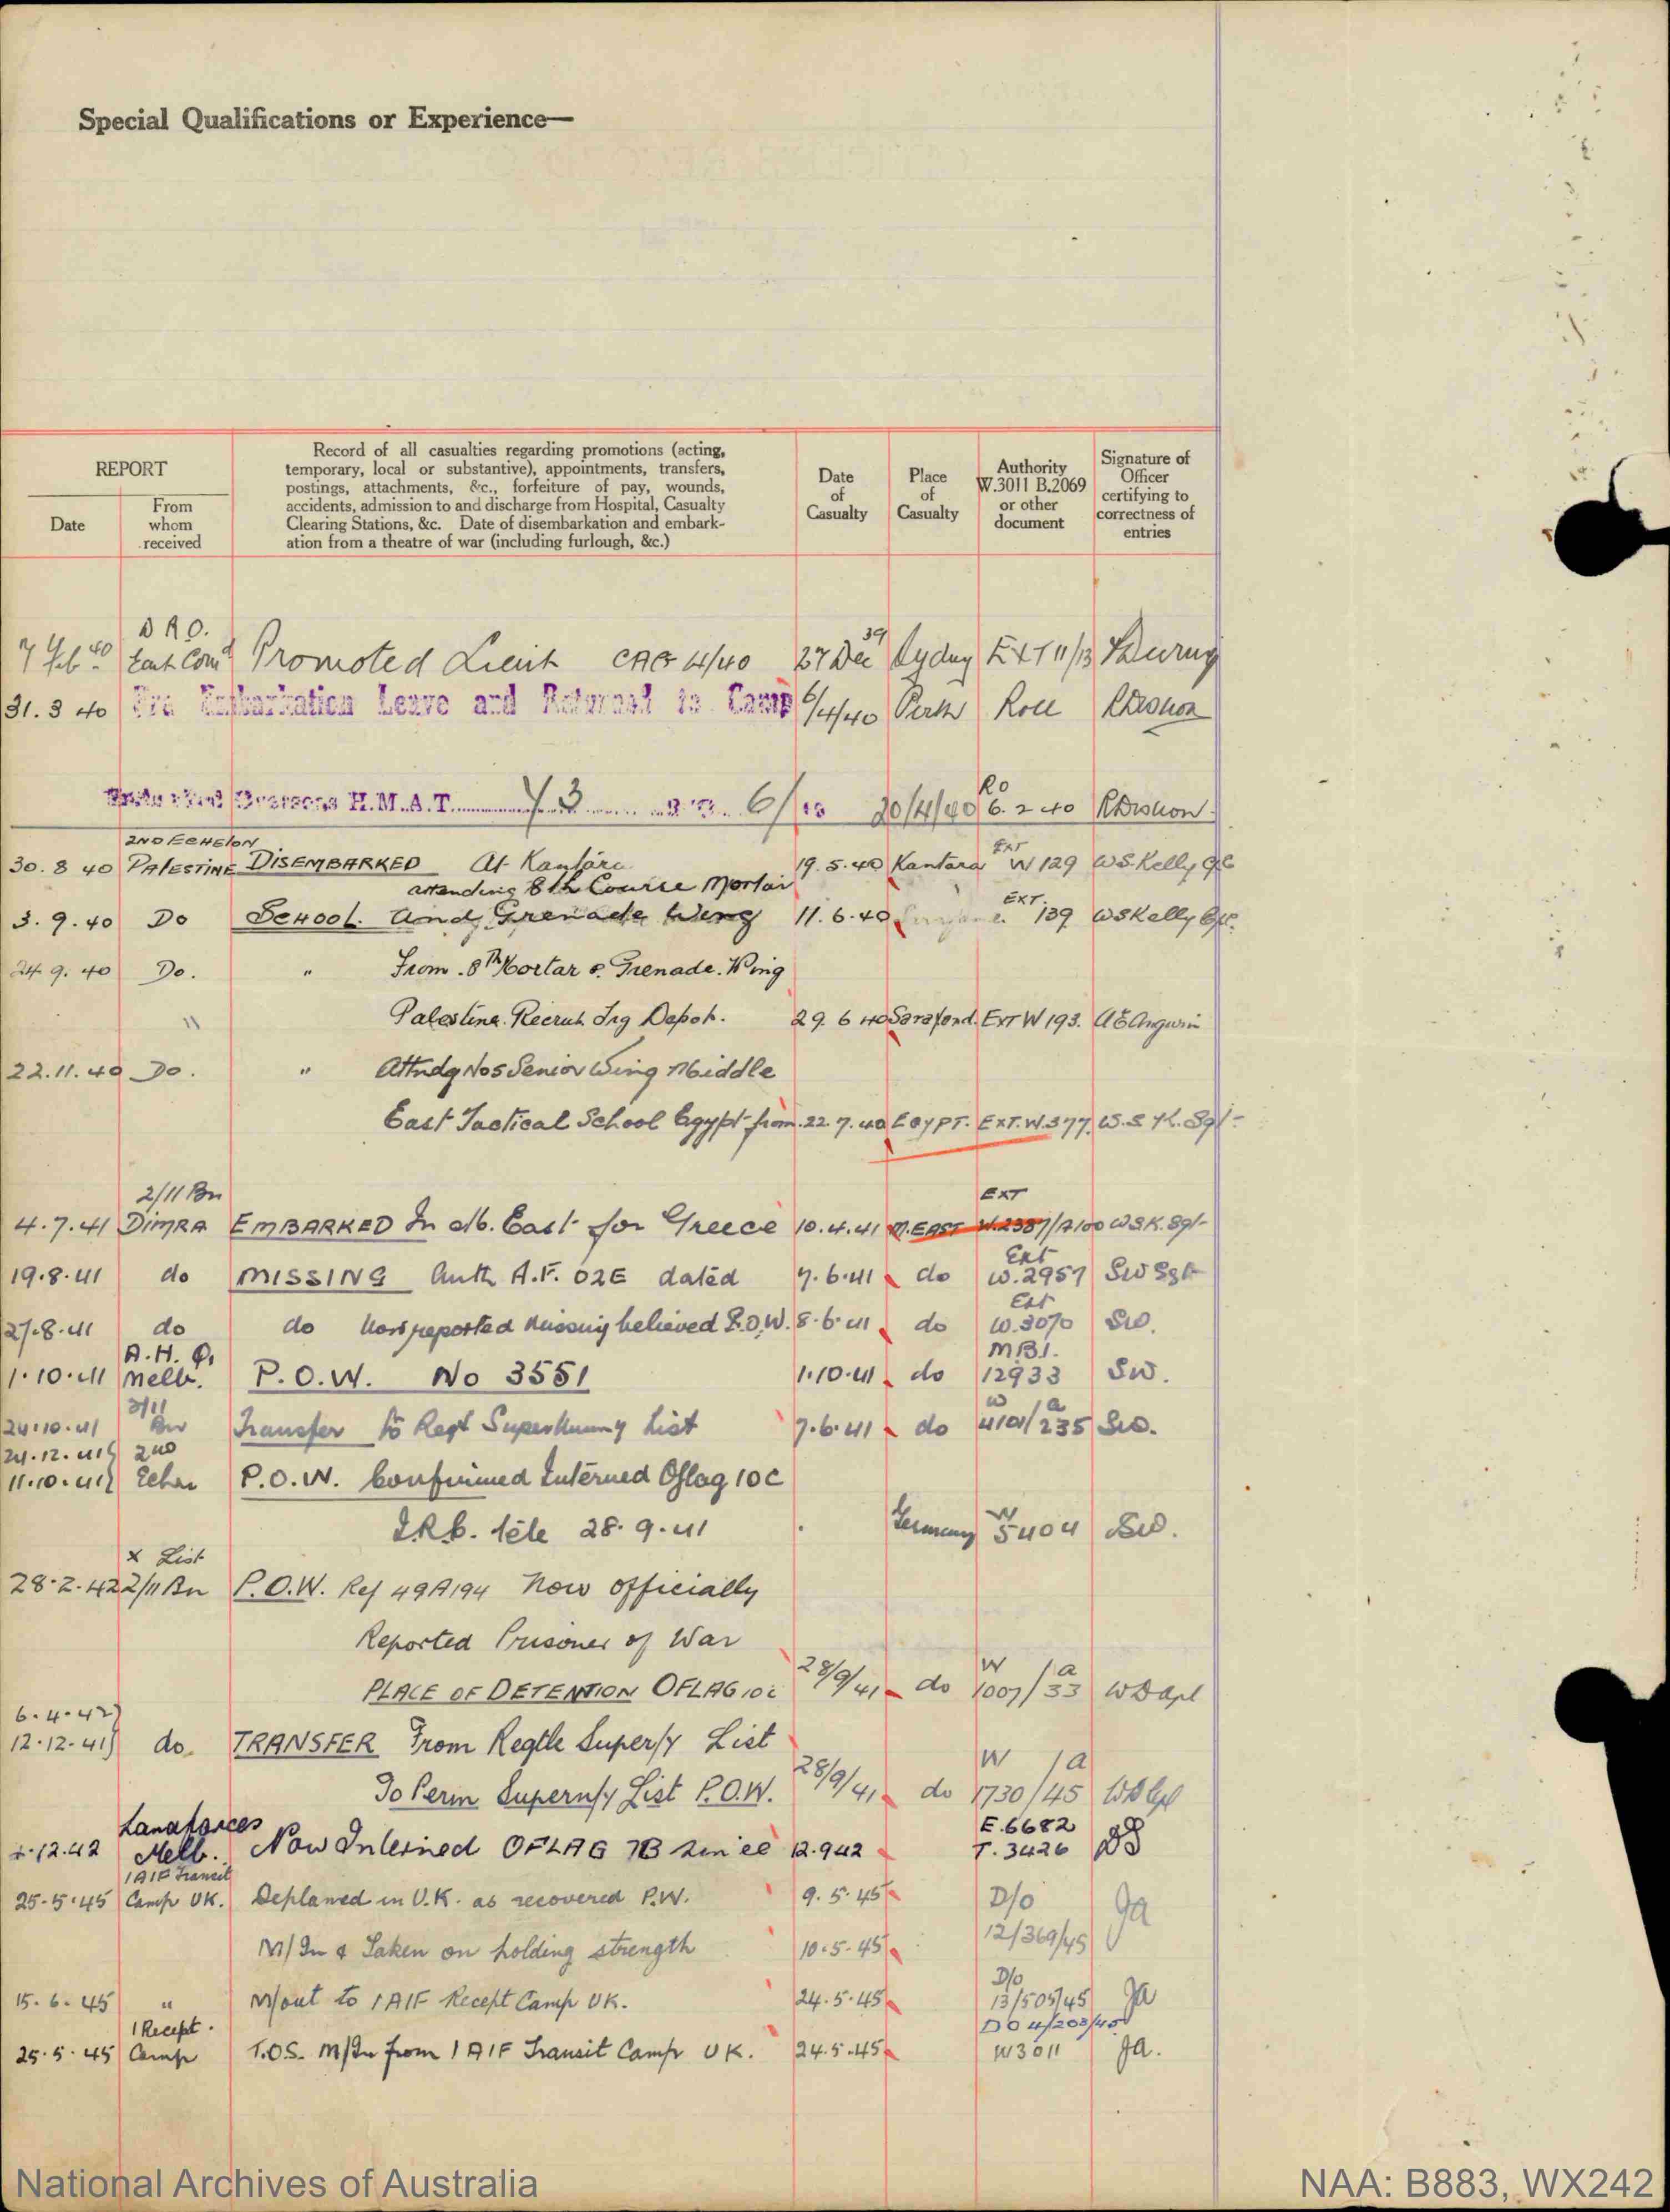 Special Qualifications or Experience—
REPORT
Date
From
whom
received
Record of all casualties regarding promotions (acting,
temporary, local or substantive), appointments, transfers,
postings, attachments, &c., forfeiture of pay, wounds,
accidents, admission to and discharge from Hospital, Casualty
Clearing Stations, &c. Date of disembarkation and embark-
ation from a theatre of war (including furlough, &c.)
Date
of
Casualty
Place
of
Casualty
Authority
W.3011 B.2069
or other
document
Signature of
Officer
certifying to
correctness of
entries
DRO.
7 Feb 40 East Com'd Promoted Lieut CAG 4/40 27 Dec 39 Sydney EXT 11/13
31.3 40 Pre Embarkation Leave and Returned to Camp 6/4/40 Perth Roll
Overseas H.M.A.T. Y3 6/ 20/4/40 RO 6. 2 40
2ND ECHELON
30. 8 40 PALESTINE DISEMBARKED At Kantara 19. 5. 40 Kantara EXT W 129 WS Kelly
attending 8th Course Mortar
3. 9. 40 Do SCHOOL. and Grenade Wing 11. 6. 40 EXT. 139 WS Kelly
24 9. 40 Do. " From 8th Mortar & Grenade Wing
" Palestine Recruit Trg Depot. 29. 6 40 Sarafond. EXT W 193.
22. 11. 40 Do. " Attndg No5 Senior Wing Middle
East Tactical School Egypt from 22. 7. 40 EGYPT. EXT. W. 377 W.S.K. Sgt-
2/11 Bn EXT
4. 7. 41 DIMRA EMBARKED In M. East for Greece 10. 4. 41 M.EAST W.2387/A100 W.S.K. Sgt-
Ext
19. 8. 41 do MISSING Auth A.F. 02E dated 7. 6. 41 do W. 2957 SW Sgt
Ext
27. 8. 41 do do Now reported missing believed P.O.W. 8. 6. 41 do W. 3070 SW.
A. H. Q. MB1.
1. 10. 41 Melb. P.O.W. No 3551 1.10.41 do 12933 SW.
2/11 W a
24.10.41 Bn Transfer to Regt Supernumy List 7. 6. 41 do 4101/235 SW.
24. 12. 41) 2nd
11. 10. 41) Echn P.O.W. Confirmed Interned Oflag 10 C
I.R.C. tele 28. 9. 41 Germany W 5404 SW.
X List
28. 2. 42 2/11 Bn P.O.W. Ref 49A194 Now officially
Reported Prisoner of War
PLACE OF DETENTION OFLAG 10C 28/9/41 do W 1007/33 a
6. 4. 42)
12. 12. 41) do. TRANSFER From Regtle Super/y List
To Perm Supern/y List P.O.W. 28/9/41 do W 1730/45 a
Landforces E. 6682
12.42 Melb. Now Interned OFLAG 7B since 12.942 T. 3426
1 AIF Transit
25. 5. 45 Camp UK. Deplaned in U.K. as recovered P.W. 9. 5. 45 D/O
M/In & Taken on holding strength 10. 5. 45 12/369/45
D/O
15. 6. 45 " M/out to 1 AIF Recept Camp UK. 24. 5. 45 13/505/45
1 Recept. DO 4/203/45
25. 5. 45 Camp T.O.S. M/In from 1 AIF Transit Camp UK. 24. 5. 45 W3011
National Archives of Australia
NAA: B883, WX242